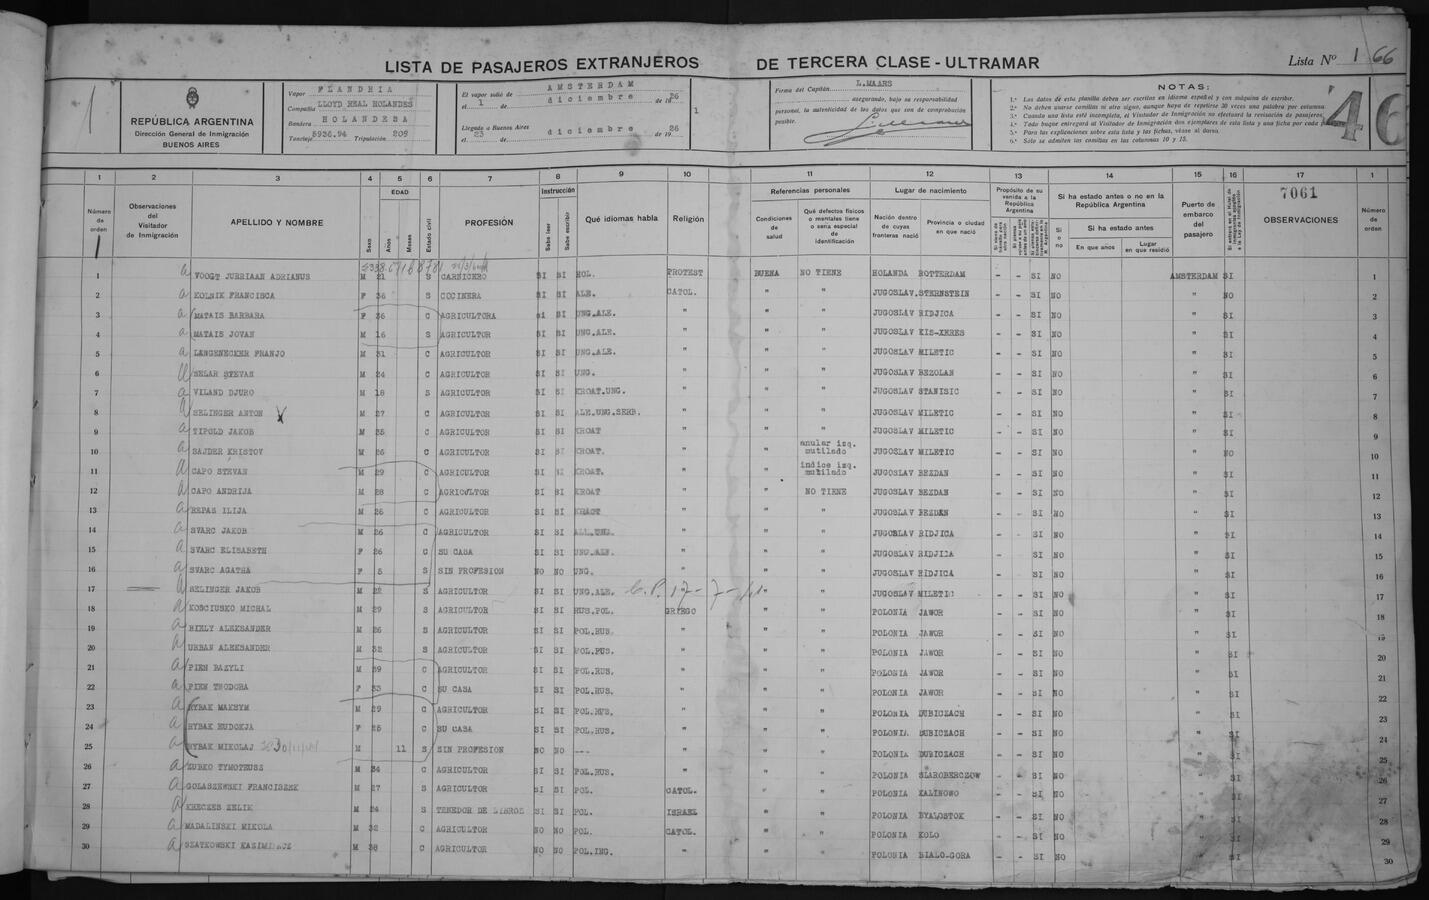 LISTA DE PASAJEROS EXTRANJEROS DE TERCERA CLASE - ULTRAMAR Lista Nº 1 66
REPÚBLICA ARGENTINA
Dirección General de Inmigración
BUENOS AIRES
Vapor FLANDRIA
Compañía LLOYD REAL HOLANDES
Bandera HOLANDESA
Tonelaje 5936.94 Tripulación 209
El vapor salió de AMSTERDAM
el 1 de diciembre de 1926
Llegado a Buenos Aires
el 23 de diciembre de 1926
1
Firma del Capitán L.MAARS
asegurando, bajo su responsabilidad
personal, la autenticidad de los datos que son de comprobación
posible.
NOTAS:
1.ª Los datos de esta planilla deben ser escritos en idioma español y con máquina de escribir.
2.ª No deben usarse comillas ni otro signo, aunque haya de repetirse 30 veces una palabra por columna.
3.ª Cuando una lista esté incompleta, el Visitador de Inmigración no efectuará la revisación de pasajeros.
4.ª Todo buque entregará al Visitador de Inmigración dos ejemplares de esta lista y una ficha por cada
5.ª Para las explicaciones sobre esta lista y las fichas, véase al dorso.
6.ª Sólo se admiten las comillas en las columnas 10 y 15.
46
1 2 3 4 5 6 7 8 9 10 11 12 13 14 15 16 17 1
7061
Número de orden
Observaciones del Visitador de Inmigración
APELLIDO Y NOMBRE
Sexo
EDAD
Años
Meses
Estado civil
PROFESIÓN
Instrucción
Sabe leer
Sabe escribir
Qué idiomas habla
Religión
Referencias personales
Condiciones de salud
Qué defectos físicos o mentales tiene o seria especial de identificación
Lugar de nacimiento
Nación dentro de cuyas fronteras nació
Provincia o ciudad en que nació
Propósito de su venida a la República Argentina
Si ha estado antes o no en la República Argentina
Si o no
Si ha estado antes
En que años
Lugar en que residió
Puerto de embarco del pasajero
OBSERVACIONES
Número de orden
1 a VOOGT JURRIAAN ADRIANUS M 21 S CARNICERO SI SI HOL. PROTEST BUENA NO TIENE HOLANDA ROTTERDAM - - SI NO AMSTERDAM SI 1
2 a KOLNIK FRANCISCA F 36 S COCINERA SI SI ALE. CATOL. " " JUGOSLAV. STERNSTEIN - - SI NO " NO 2
3 a MATAIS BARBARA F 36 C AGRICULTORA SI SI UNG.ALE. " " " JUGOSLAV RIDJICA - - SI NO " SI 3
4 a MATAIS JOVAN M 16 S AGRICULTOR SI SI UNG.ALE. " " " JUGOSLAV KIS-XERES - - SI NO " SI 4
5 a LANGENECKER FRANJO M 31 C AGRICULTOR SI SI UNG.ALE. " " " JUGOSLAV MILETIC - - SI NO " SI 5
6 a SELAR STEVAN M 24 C AGRICULTOR SI SI UNG. " " " JUGOSLAV BEZOLAN - - SI NO " SI 6
7 a VILAND DJURO M 18 S AGRICULTOR SI SI KROAT.UNG. " " " JUGOSLAV STANISIC - - SI NO " SI 7
8 a SELINGER ANTON X M 27 C AGRICULTOR SI SI ALE.UNG.SERB. " " " JUGOSLAV MILETIC - - SI NO " SI 8
9 a TIPOLD JAKOB M 35 C AGRICULTOR SI SI KROAT " " " JUGOSLAV MILETIC - - SI NO " SI 9
10 a SAJDER KRISTOV M 26 C AGRICULTOR SI SI KROAT. " " anular izq. mutilado JUGOSLAV MILETIC - - SI NO " NO 10
11 a CAPO STEVAN M 29 C AGRICULTOR SI SI KROAT. " " indice izq. mutilado JUGOSLAV BEZDAN - - SI NO " SI 11
12 a CAPO ANDRIJA M 28 C AGRICULTOR SI SI KROAT " " NO TIENE JUGOSLAV BEZDAN - - SI NO " SI 12
13 a REPAS ILIJA M 26 C AGRICULTOR SI SI KROAT " " " JUGOSLAV BEZDAN - - SI NO " SI 13
14 a SVARC JAKOB M 26 C AGRICULTOR SI SI " " " JUGOSLAV RIDJICA - - SI NO " SI 14
15 a SVARC ELISABETH F 26 C SU CASA SI SI UNG.ALE. " " " JUGOSLAV RIDJICA - - SI NO " SI 15
16 a SVARC AGATHA F 5 S SIN PROFESION NO NO UNG. " " " JUGOSLAV RIDJICA - - SI NO " SI 16
17 a SELINGER JAKOB M 22 S AGRICULTOR SI SI UNG.ALE. " " JUGOSLAV MILETIC - - SI NO " SI 17
18 a KOSCIUSKO MICHAL M 29 S AGRICULTOR SI SI RUS.POL. GRIEGO " " POLONIA JAWOR - - SI NO " SI 18
19 a BIELY ALEKSANDER M 26 S AGRICULTOR SI SI POL.RUS. " " " POLONIA JAWOR - - SI NO " SI 19
20 a URBAN ALEKSANDER M 32 S AGRICULTOR SI SI POL.RUS. " " " POLONIA JAWOR - - SI NO " SI 20
21 a PIEN BAZYLI M 39 C AGRICULTOR SI SI POL.RUS. " " " POLONIA JAWOR - - SI NO " SI 22
22 a PIEN TEODORA F 33 C SU CASA SI SI POL.RUS. " " " POLONIA JAWOR - - SI NO " SI
23 a RYBAK MAKSYM M 29 C AGRICULTOR SI SI POL.RUS. " " " POLONIA DUBICZACH - - SI NO " SI 23
24 a RYBAK EUDOKJA F 25 C SU CASA SI SI POL.RUS. " " " POLONIA DUBICZACH - - SI NO " SI 24
25 a RYBAK MIKOLAJ M 11 S SIN PROFESION NO NO --- " " " POLONIA DUBICZACH - - SI NO " SI 25
26 a ZUBKO TYMOTEUSZ M 34 C AGRICULTOR SI SI POL.RUS. " " " POLONIA SLAROBERCZOW - - SI NO " SI 26
27 a GOLASZEWSKI FRANCISZEK M 27 S AGRICULTOR SI SI POL. CATOL. " " POLONIA KALINOWO - - SI NO " SI 27
28 a KRECKES ZELIK M 24 S TENEDOR DE LIBROS SI SI POL. ISRAEL " " POLONIA BYALOSTOK - - SI NO " SI 28
29 a MADALINSKI MIKOLA M 32 C AGRICULTOR NO NO POL. CATOL. " " POLONIA KOLO - - SI NO " SI 29
30 a SZATKOWSKI KAZIMIERZ M 38 C AGRICULTOR NO NO POL.ING. " " POLONIA BIALO-GORA - - SI NO " SI 30